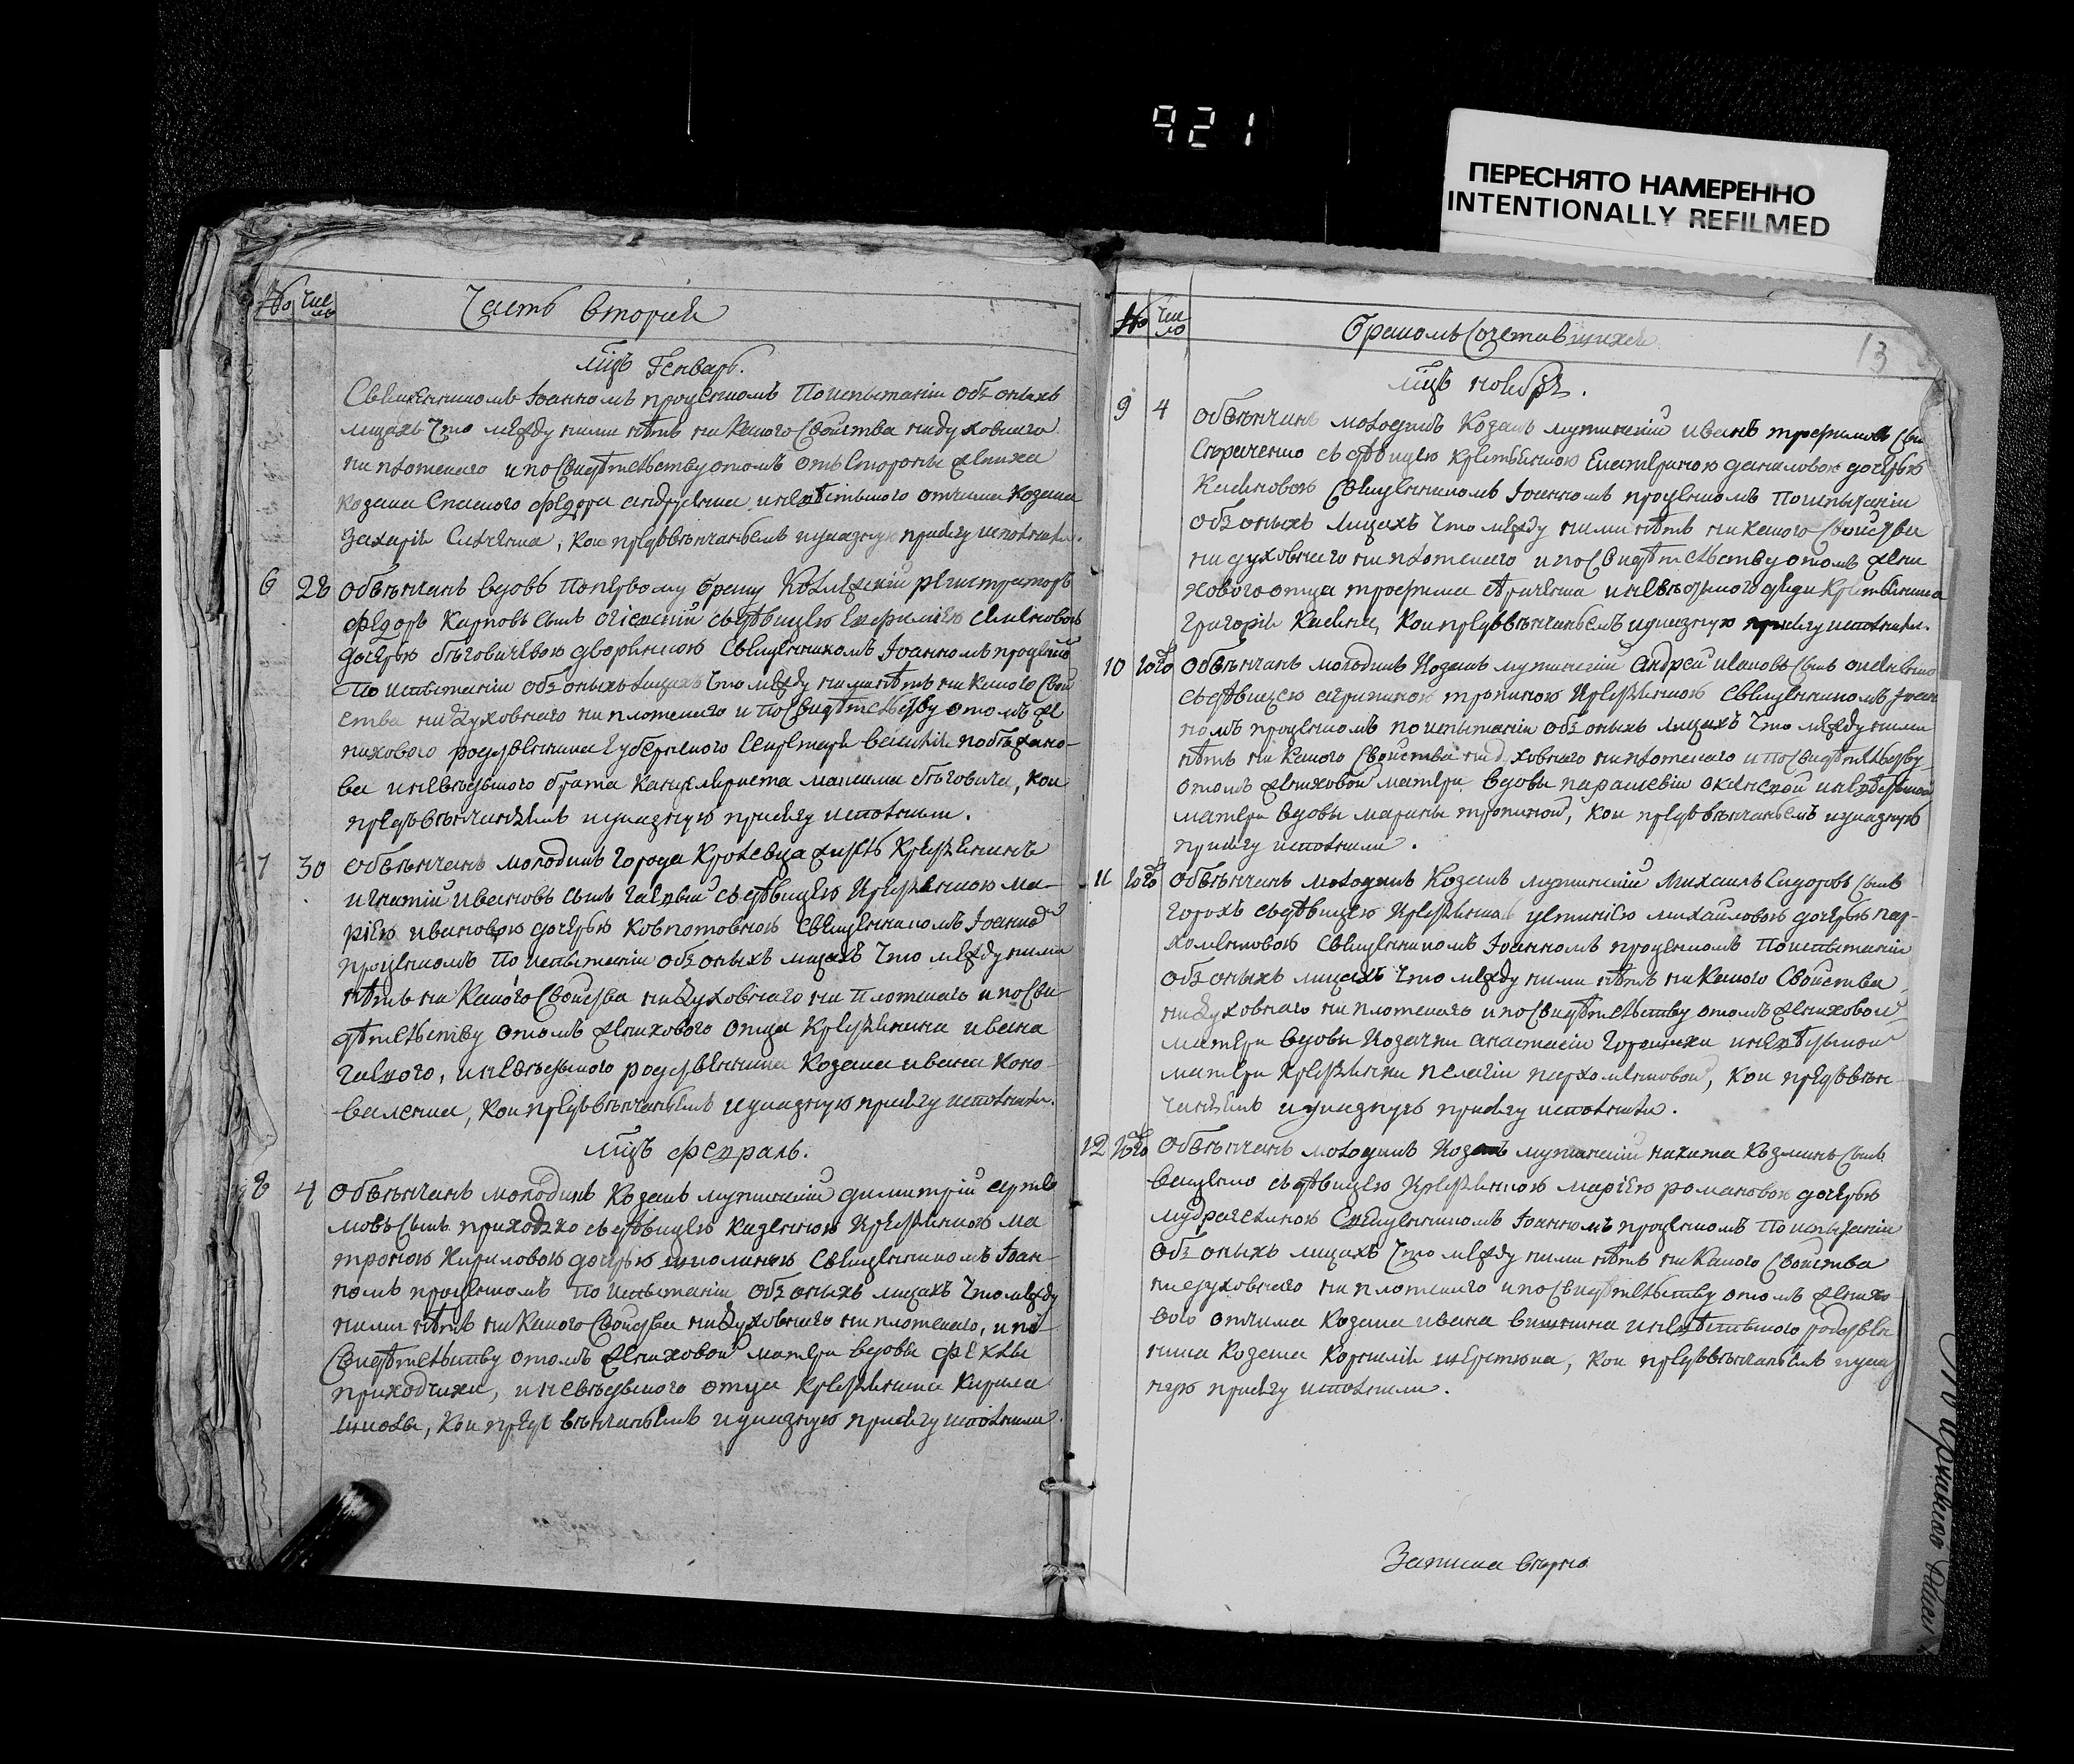 921
ПЕРЕСНЯТО НАМЕРЕННО
INTENTIONALLY REFILMED
№ Число
Часть вторая
мцъ Генварь.
Священникомъ Іоанномъ Проценкомъ По испытаніи объ оныхъ
лицахъ Что между ними нѣтъ никакого Свойства ни духовнаго
ни плотскаго и по Свидѣтелству о томъ отъ Стороны жениха
козака Федора и невѣстиного отчима козака
Захарія кои предъ вѣнчаніемъ и указную присягу исполнили.
6 28 Обвѣнчанъ вдовъ по первому браку Колежскій регистраторъ
Федоръ Карповъ сынъ съ дѣвицею Евфиміею
дочерью бѣговичевою дворянкою Священникомъ Іоанномъ Проценко
По испытаніи объ оныхъ лицахъ Что между ними нѣтъ никакого Свой
ства ни духовнаго ни плотскаго и по Свидѣтелству о томъ же
нихового родственника Губернского Секретаря Василія
ва и невѣстиного брата Канцеляриста Максима бѣговича, кои
предъ вѣнчаніемъ и указную присягу исполнили.
7 30 Обвѣнчанъ молодикъ города Кролевца житель Крестьянинъ
Игнатій Ивановъ сынъ съ дѣвицею Крестьянкою Ма-
ріею Ивановою дочерью Священникомъ Іоанно
Проценкомъ По испытаніи объ оныхъ лицахъ Что между ними
нѣтъ никакого Свойства ни духовнаго ни плотскаго и по Сви-
дѣтелству о томъ женихового отца Крестьянина Ивана
и невѣстиного родственника Козака Ивана Коно-
валенка, кои предъ вѣнчаніемъ и указную присягу исполнили.
мцъ Февраль.
8 4 Обвѣнчанъ молодикъ Козакъ мутинскій Димитрій Артио
мовъ сынъ Приходко съ дѣвицею казенною Крестьянкою Ма
троною Кириловою дочерью Священникомъ Іоан-
номъ Проценкомъ По испытаніи объ оныхъ лицахъ Что между
ними нѣтъ никакого Свойства ни духовнаго ни плотскаго, и по
Свидѣтелству о томъ жениховой матери вдовы Феклы
Приходчихи, и невѣстиного отца Крестьянина Кирила
кои предъ вѣнчаніемъ и указную присягу исполнили.
№ Число
бракомъ Сочетавшихся
13
мцъ ноября.
9 4 Обвѣнчанъ молодикъ Козакъ мутинскій Иванъ Трофимовъ Сынъ
съ дѣвицею Крестьянкою Екатериною Даниловою дочерью
Священникомъ Іоанномъ Проценкомъ По испытаніи
объ оныхъ лицахъ Что между ними нѣтъ никакого Свойства
ни духовнаго ни плотскаго и по Свидѣтелству о томъ жени
хового отца Трофима и невѣстиного дяди Крестьянина
Григорія кои предъ вѣнчаніемъ и указную присягу исполнили.
10 Обвѣнчанъ молодикъ Козакъ мутинскій Андрей сынъ
съ дѣвицею Агрипиною Крестьянкою Священникомъ Іоан
номъ Проценкомъ По испытаніи объ оныхъ лицахъ Что между ними
нѣтъ никакого Свойства ни духовнаго ни плотскаго и по Свидѣтелству
о томъ жениховой матери вдовы Параскевіи и невѣстиной
матери вдовы Марины кои предъ вѣнчаніемъ и указную
присягу исполнили.
11 Обвѣнчанъ молодикъ Козакъ мутинскій Михаилъ Сидоровъ Сынъ
Горохъ съ дѣвицею Крестьянкою Устиніею Михайловою дочерью Пар-
хоменковою Священникомъ Іоанномъ Проценкомъ По испытаніи
объ оныхъ лицахъ Что между ними нѣтъ никакого Свойства
ни духовнаго ни плотскаго и по Свидѣтелству о томъ жениховой
матери вдовы Козачки Анастасіи и невѣстиной
матери Крестьянки Пелагіи Пархоменковой, кои предъ вѣн-
чаніемъ и указную присягу исполнили.
12 Обвѣнчанъ молодикъ Козакъ мутинскій Никита Козминъ сынъ
съ дѣвицею Крестьянкою Маріею Романовою дочерью
Священникомъ Іоанномъ Проценкомъ По испытаніи
объ оныхъ лицахъ Что между ними нѣтъ никакого Свойства
ни духовнаго ни плотскаго и по Свидѣтелству о томъ женихо
вого отчима Козака Ивана и невѣстиного родствен
ника Козака Корнилія кои предъ вѣнчаніемъ и указ
ную присягу исполнили.
Записка вѣрна